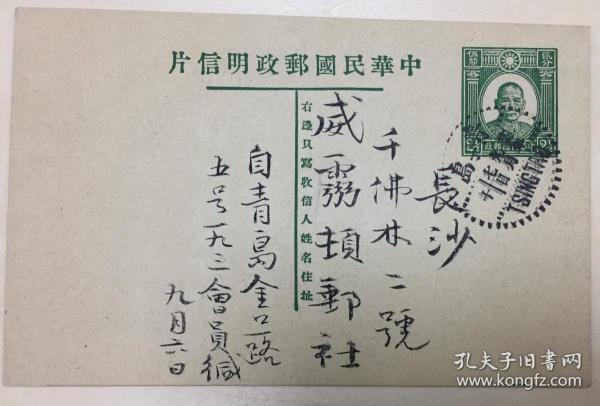 中華民國郵政明信片
右邊只寫收信人姓名住址
長沙
千佛林二號
威靈頓郵社
自青島金口路
五号一九三會員緘
九月六日
TSINGTAO
孔夫子旧书网
www.kongfz.com